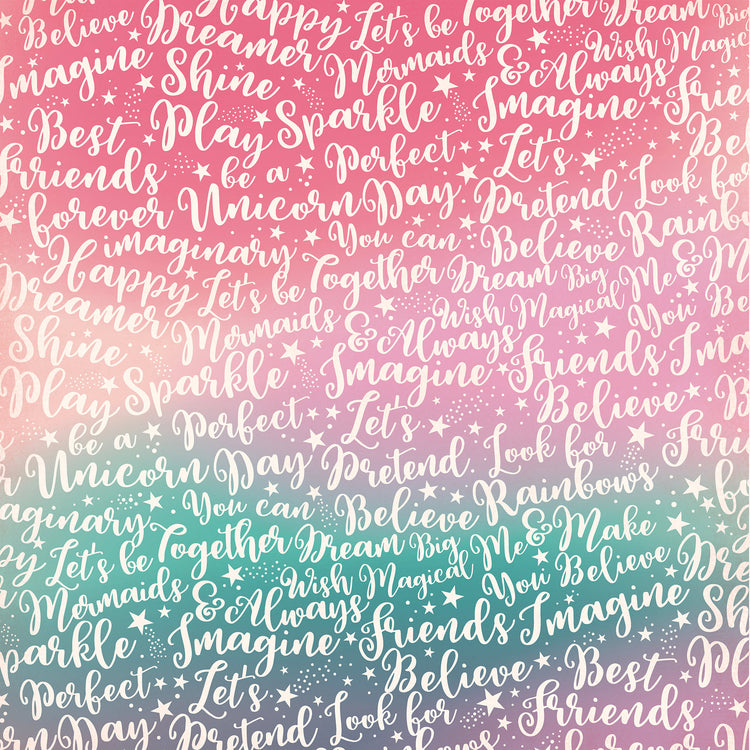 Happy Let's be Together Dream Big
Believe Dreamer Mermaids & Always Wish Magical
Imagine Shine Sparkle Imagine Friends
Best Play Perfect Let's Be
Frriends be a Pretend Look for
forever Unicorn Day Believe Rainbows
imaginary You can
Happy Let's be Together Dream Big Me & Make
Dreamer Mermaids & Always Wish Magical You Be
Shine Sparkle Imagine Friends Ima
Play Perfect Let's Believe
be a Pretend Look for Frri
Unicorn Day Believe Rainbows fo
aginary You can
ppy Let's be Together Dream Big Me & Make
Mermaids & Always Wish Magical You Believe Dre
parkle Imagine Friends Imagine Sh
Perfect Let's Believe Best Pla
corn Day Pretend Look for Frriends
Believe Rainbows forever Un